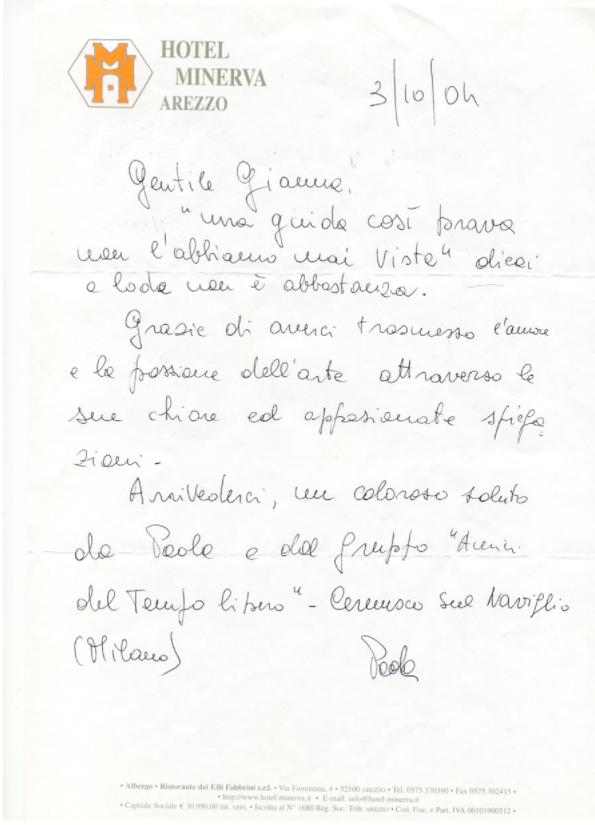 HOTEL
MINERVA
AREZZO
3/10/04
Gentile Gianna,
"una guida così brava
non l'abbiamo mai vista" dieci
e lode non è abbastanza.
Grazie di averci trasmesso l'amore
e la passione dell'arte attraverso le
sue chiare ed appasionate spiega
zioni -
Arrivederci, un caloroso saluto
da Paola e dal gruppo "Amici
del Tempo libero" - Cernusco sul Naviglio
(Milano) Paola
• Albergo • Ristorante dei F.lli Fabbrini s.r.l. • Via Fiorentina, 4 • 52100 AREZZO • Tel. 0575.370390 • Fax 0575.302415 •
• http://www.hotel-minerva.it • E-mail: info@hotel-minerva.it
• Capitale Sociale € 30.990,00 int. vers. • Iscritta al N° 1680 Reg. Soc. Trib. AREZZO • Cod. Fisc. e Part. IVA 00101900512 •